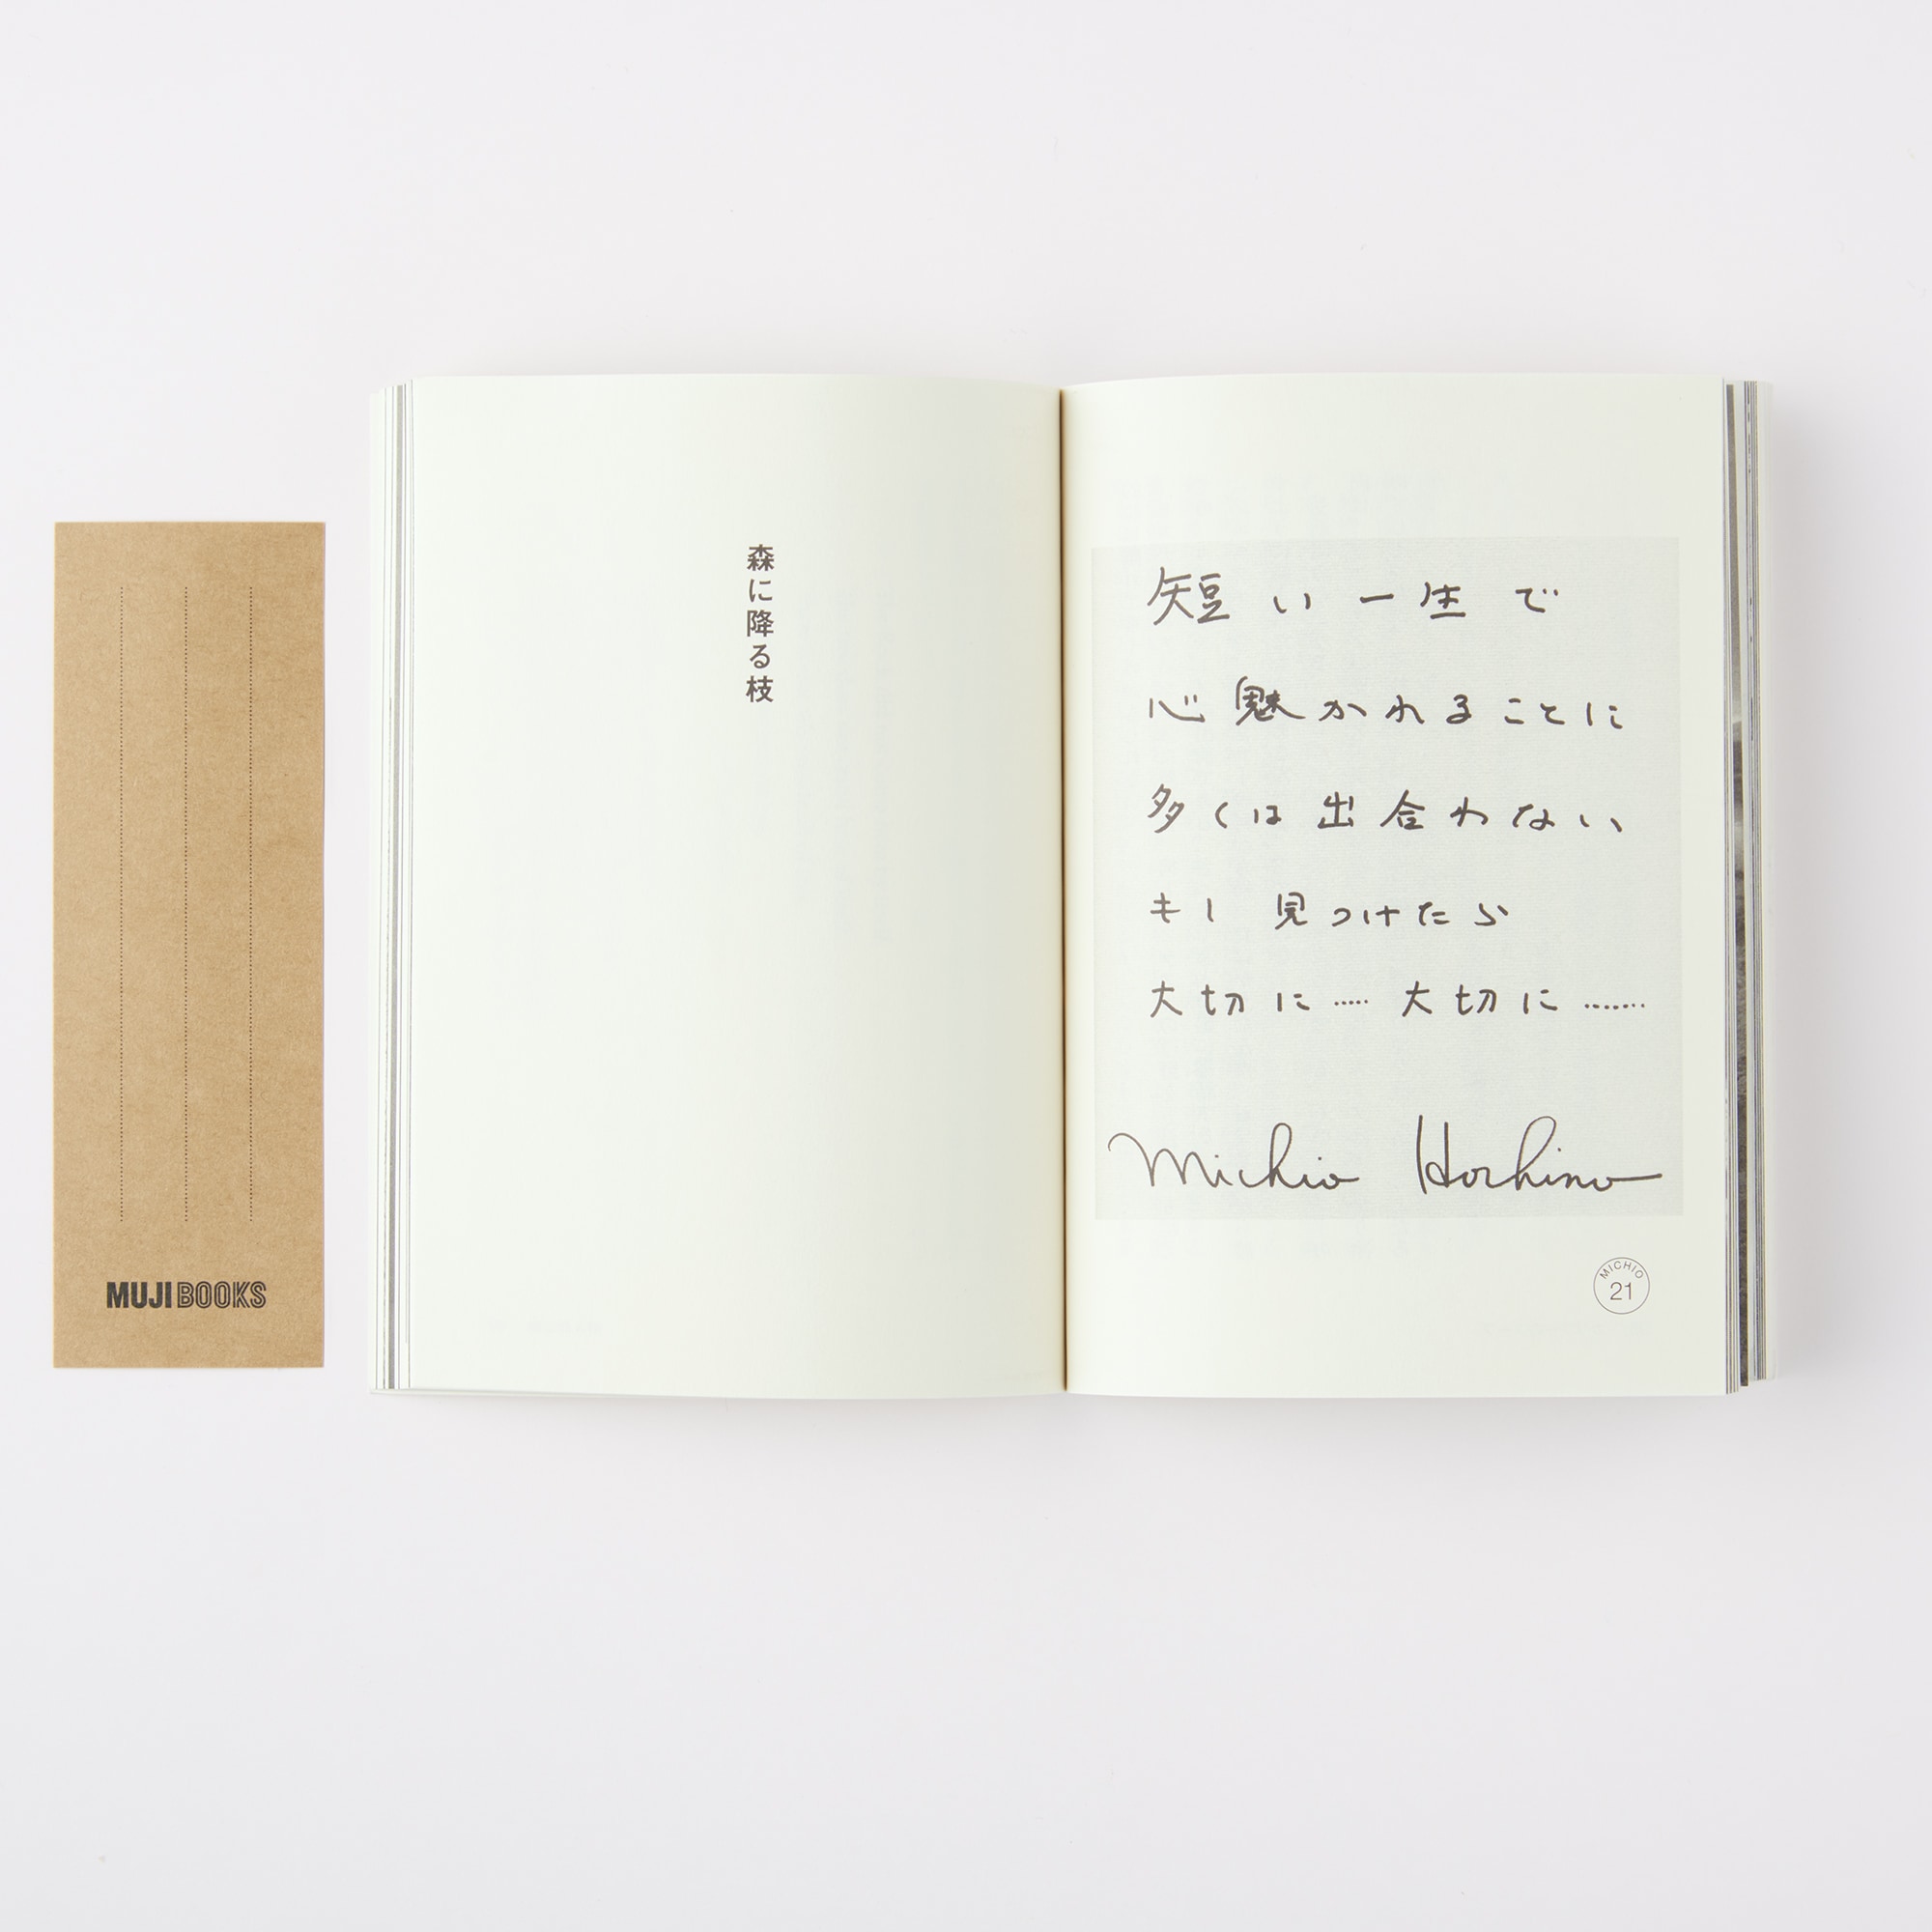 短い一生で
心魅かれることに
多くは出合わない
もし 見つけたら
大切に..... 大切に.......
Michio Hoshino
MICHIO
21
森に降る枝
MUJI BOOKS